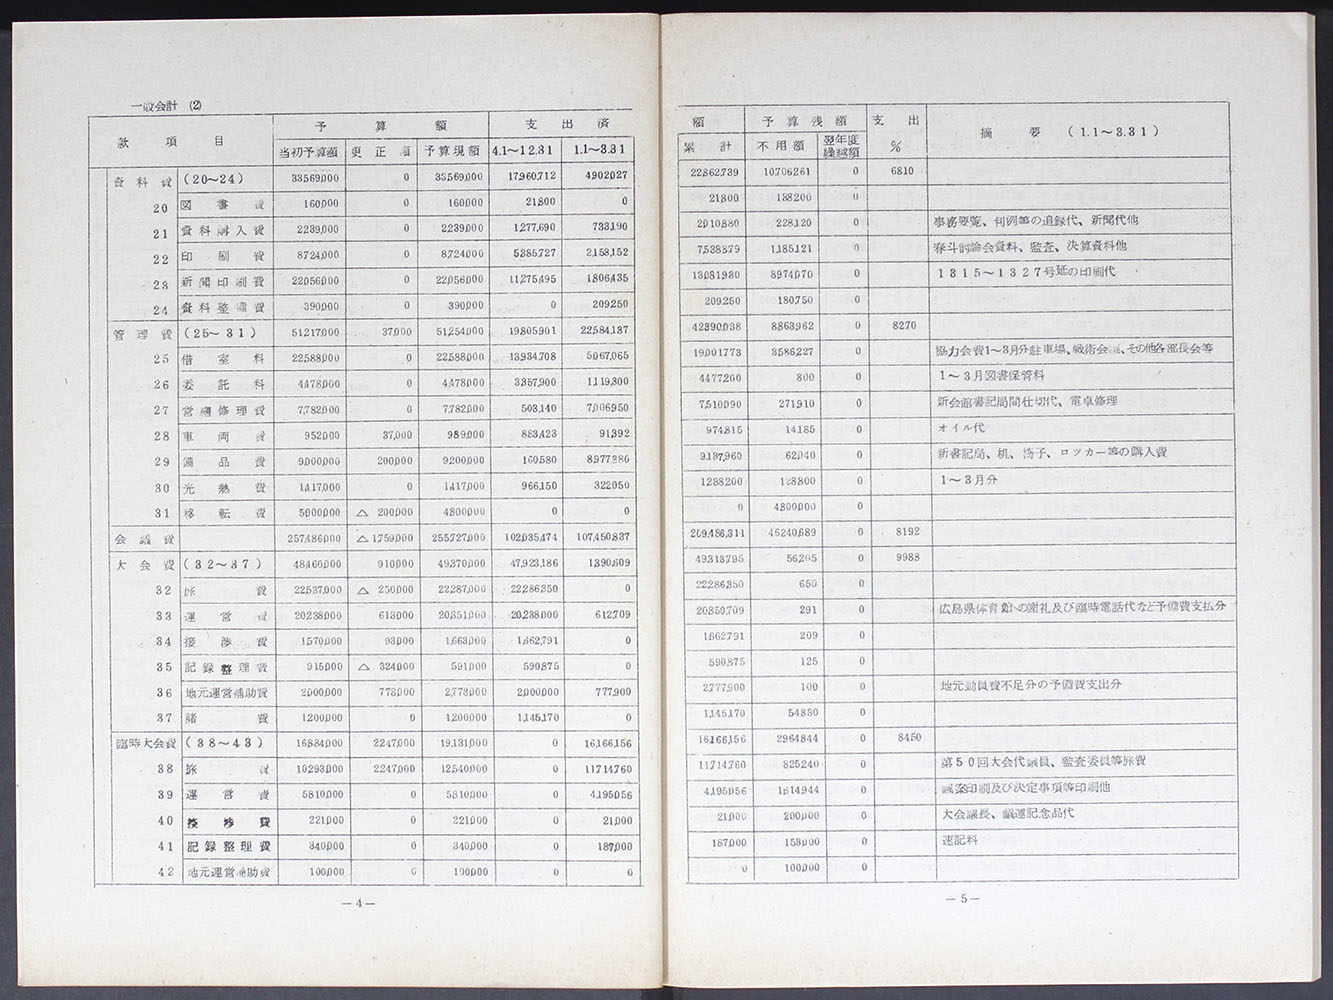 一般会計 (2)
款 項 目 予 算 額 支 出 済
当初予算額 更 正 額 予算現額 4.1～12.31 1.1～3.31
資料費 (20～24) 33,569,000 0 33,569,000 17,960,712 4,902,027
20 図書費 160,000 0 160,000 21,800 0
21 資料購入費 2,239,000 0 2,239,000 1,277,690 733,190
22 印刷費 8,724,000 0 8,724,000 5,385,727 2,153,152
23 新聞印刷費 22,056,000 0 22,056,000 11,275,495 1,806,435
24 資料整備費 390,000 0 390,000 0 209,250
管理費 (25～31) 51,217,000 37,000 51,254,000 19,805,901 22,584,137
25 借室料 22,588,000 0 22,588,000 13,934,708 5,067,065
26 委託料 4,478,000 0 4,478,000 3,357,900 1,119,300
27 営繕修理費 7,782,000 0 7,782,000 503,140 7,006,950
28 車両費 952,000 37,000 989,000 883,423 91,392
29 備品費 9,000,000 200,000 9,200,000 160,580 8,977,380
30 光熱費 1,417,000 0 1,417,000 966,150 322,050
31 移転費 5,000,000 △ 200,000 4,800,000 0 0
会議費 257,486,000 △ 1,759,000 255,727,000 102,035,474 107,450,837
大会費 (32～37) 48,460,000 910,000 49,370,000 47,923,186 1,390,609
32 旅費 22,537,000 △ 250,000 22,287,000 22,286,350 0
33 運営費 20,238,000 613,000 20,851,000 20,238,000 612,709
34 接渉費 1,570,000 93,000 1,663,000 1,662,791 0
35 記録整理費 915,000 △ 324,000 591,000 590,875 0
36 地元運営補助費 2,000,000 778,000 2,778,000 2,000,000 777,900
37 諸費 1,200,000 0 1,200,000 1,145,170 0
臨時大会費 (38～43) 16,884,000 2,247,000 19,131,000 0 16,166,156
38 旅費 10,293,000 2,247,000 12,540,000 0 11,714,760
39 運営費 5,810,000 0 5,810,000 0 4,195,056
40 接渉費 221,000 0 221,000 0 21,000
41 記録整理費 340,000 0 340,000 0 187,000
42 地元運営補助費 100,000 0 100,000 0 0
—4—
額 予 算 残 額 支 出 摘 要 (1.1～3.31)
累 計 不用額 翌年度繰越額 %
22,862,739 10,706,261 0 6810
21,800 138,200 0
2,010,880 228,120 0 事務要覧、判例等の追録代、新聞代他
7,538,879 1,185,121 0 春斗討論会資料、監査、決算資料他
13,081,930 8,974,070 0 1315～1327号延の印刷代
209,250 180,750 0
42,390,038 8,863,962 0 8270
19,001,773 3,586,227 0 協力会費1～3月分駐車場、戦術会議、その他各部長会等
4,477,200 800 0 1～3月図書保管料
7,510,090 271,910 0 新会館書記局間仕切代、電卓修理
974,815 14,185 0 オイル代
9,137,960 62,040 0 新書記局、机、椅子、ロッカー等の購入費
1,288,200 128,800 0 1～3月分
0 4,800,000 0
209,486,311 46,240,689 0 8192
49,313,795 56,205 0 9988
22,286,350 650 0
20,850,709 291 0 広島県体育館への謝礼及び臨時電話代など予備費支払分
1,662,791 209 0
590,875 125 0
2,777,900 100 0 地元動員費不足分の予備費支出分
1,145,170 54,830 0
16,166,156 2,964,844 0 8450
11,714,760 825,240 0 第50回大会代議員、監査委員等旅費
4,195,056 1,614,944 0 議案印刷及び決定事項等印刷他
21,000 200,000 0 大会議長、議運記念品代
187,000 153,000 0 速記料
0 100,000 0
—5—